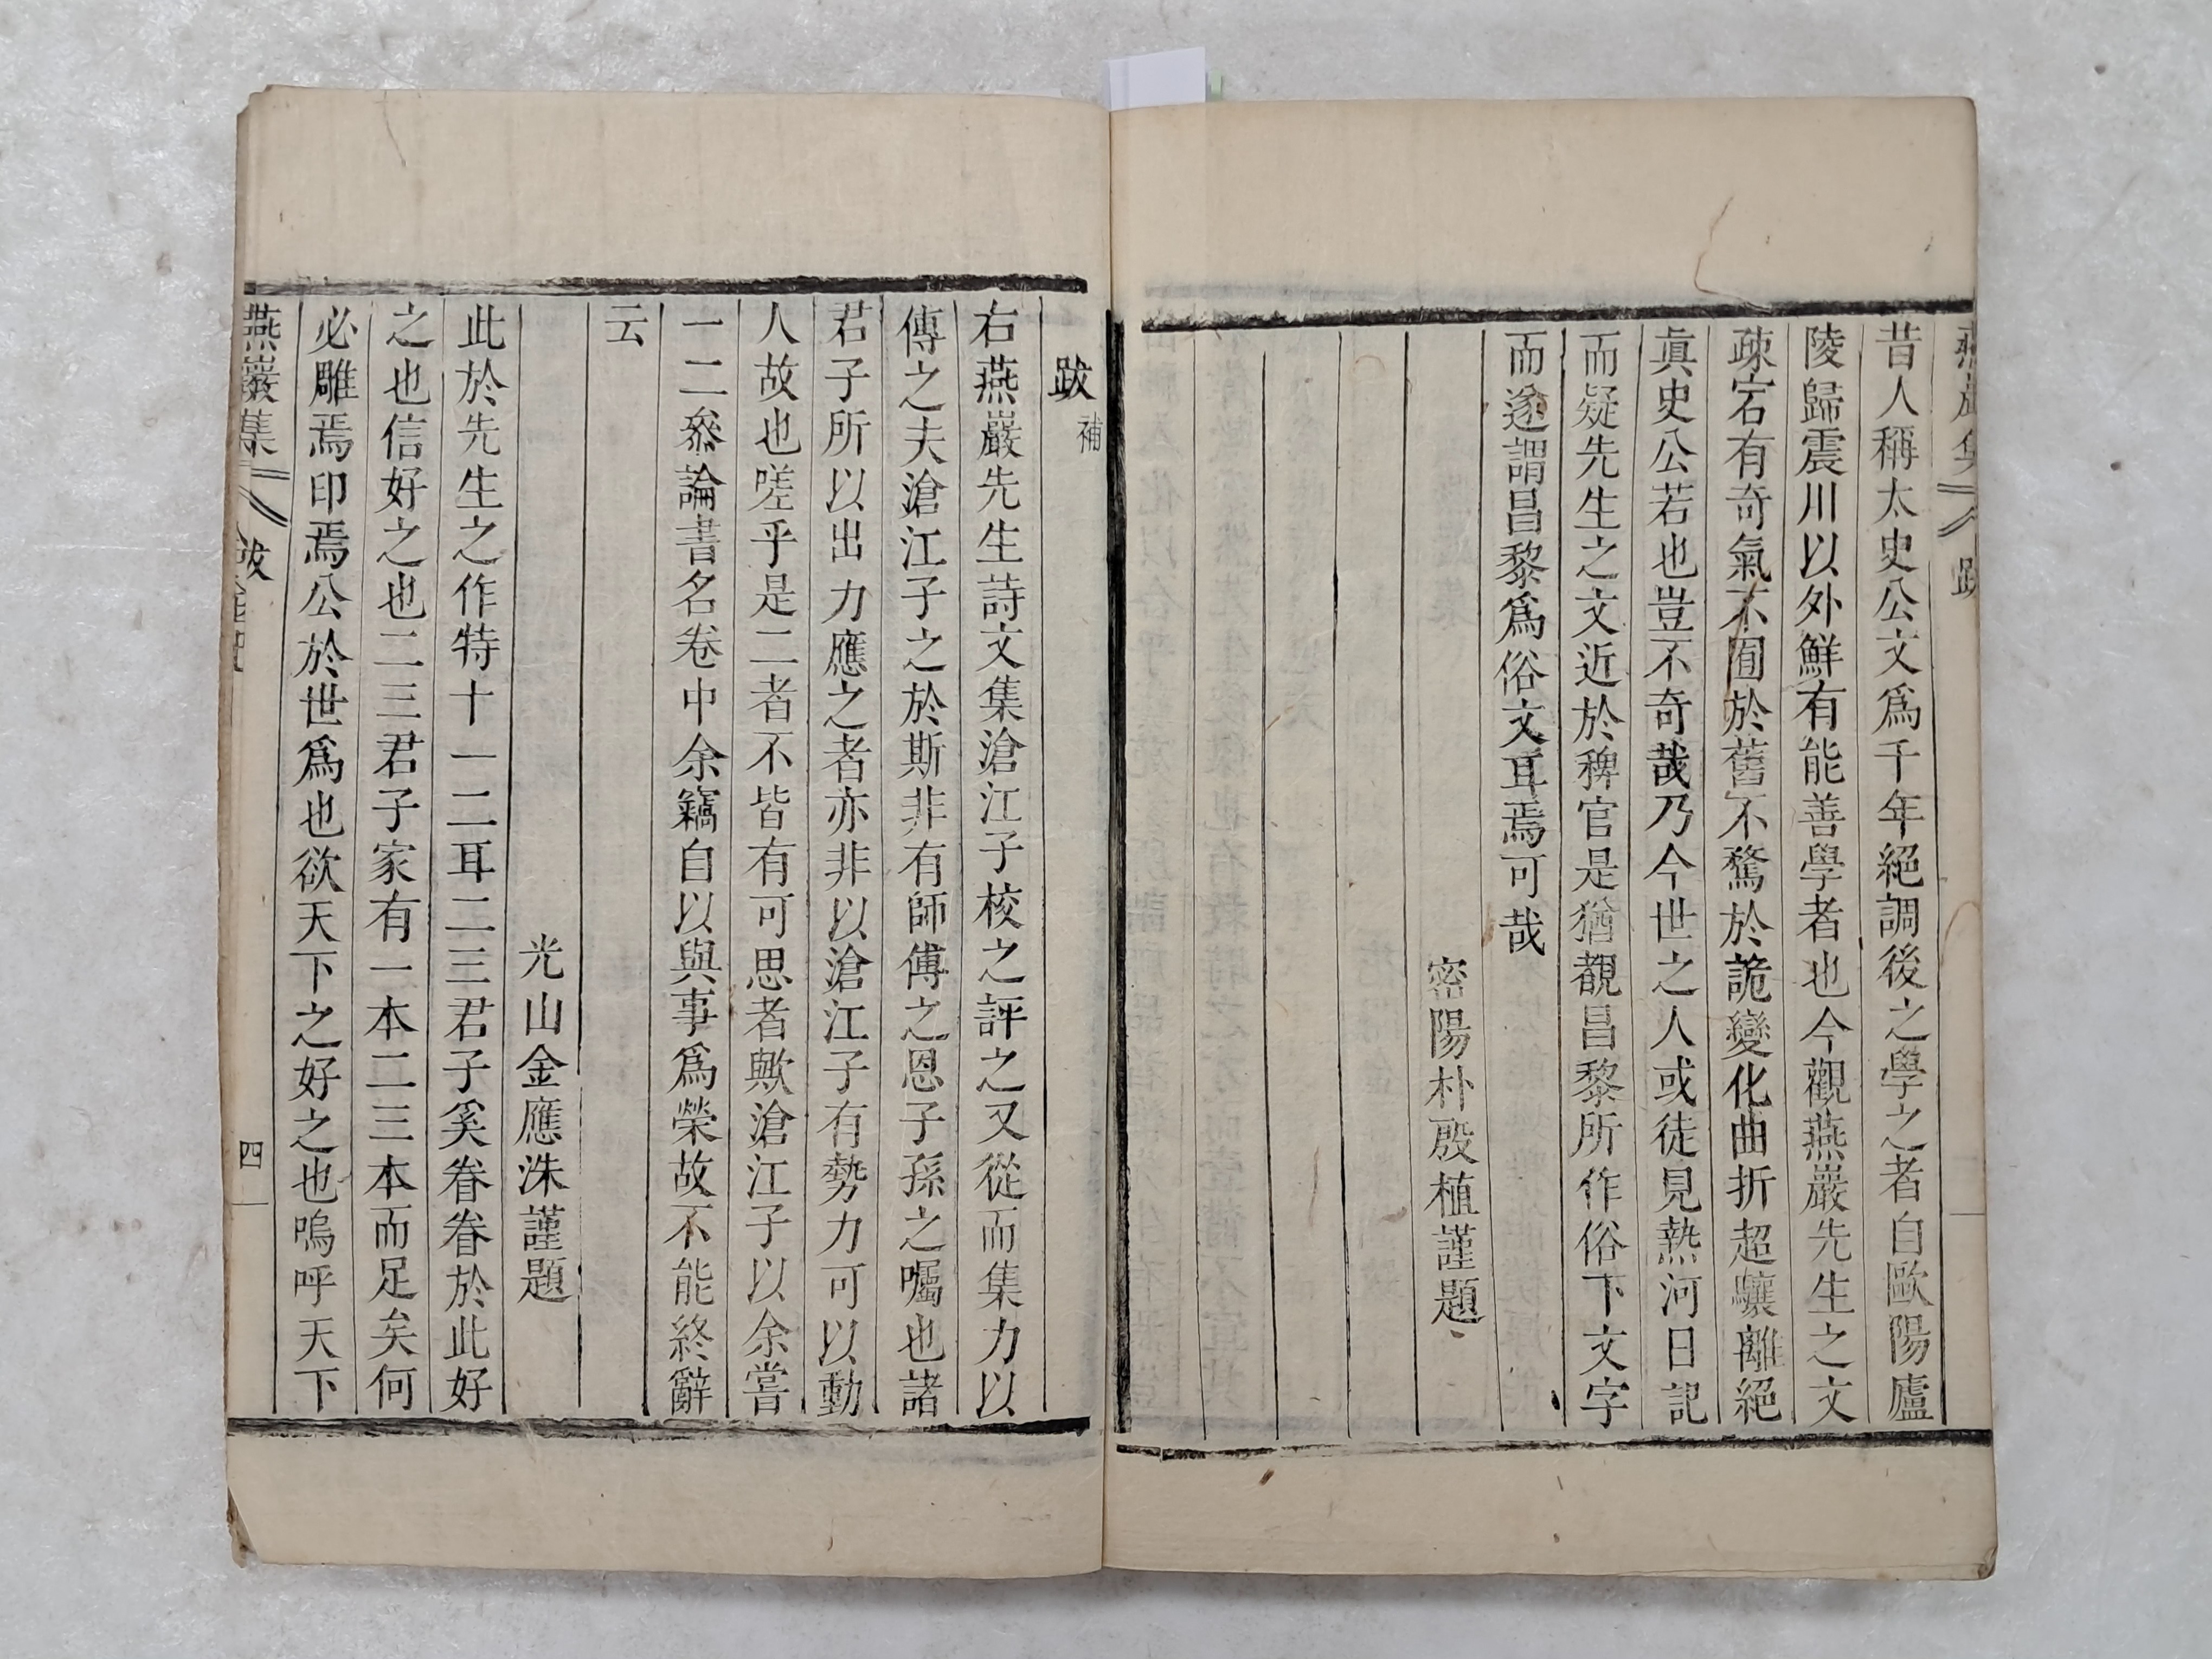 昔人稱太史公文爲千年絕調後之學之者自歐陽廬
陵歸震川以外鮮有能善學者也今觀燕巖先生之文
疎宕有奇氣不囿於舊不騖於詭變化曲折超驤離絕
眞史公若也豈不奇哉乃今世之人或徒見熱河日記
而疑先生之文近於稗官是猶覩昌黎所作俗下文字
而遂謂昌黎爲俗文耳焉可哉
密陽朴殷植謹題
跋補
右燕巖先生詩文集滄江子校之評之又從而集力以
傳之夫滄江子之於斯非有師傅之恩子孫之囑也諸
君子所以出力應之者亦非以滄江子有勢力可以動
人故也嗟乎是二者不皆有可思者歟滄江子以余嘗
一二叅論書名卷中余竊自以與事爲榮故不能終辭
云
光山金應洙謹題
此於先生之作特十一二耳二三君子奚眷眷於此好
之也信好之也二三君子家有一本二三本而足矣何
必雕焉印焉公於世爲也欲天下之好之也嗚呼天下
燕巖集
跋
四